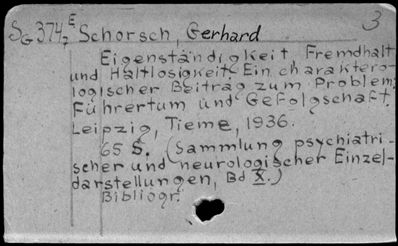 SG 374,E Schorsch, Gerhard 3
Eigenständigkeit Fremdhalt
und Haltlosigkeit Ein charaktero-
logischer Beitrag zum Problem:
Führertum und Gefolgschaft.
Leipzig, Tieme, 1936.
65 S. (Sammlung psychiatri-
scher und neurologischer Einzel-
darstellungen, Bd X.)
Bibliogr.